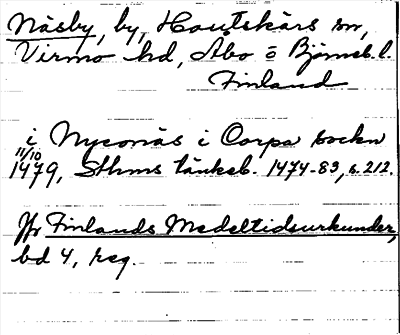 Näsby, by, Houtskärs sn,
Virmo hd, Åbo o Björneb. l.
Finland
i Nyeonäs i Corpo socken
11/10
1479, Sthms tänkeb. 1474-83, s. 212.
Jfr Finlands Medeltidsurkunder,
bd 4, reg.